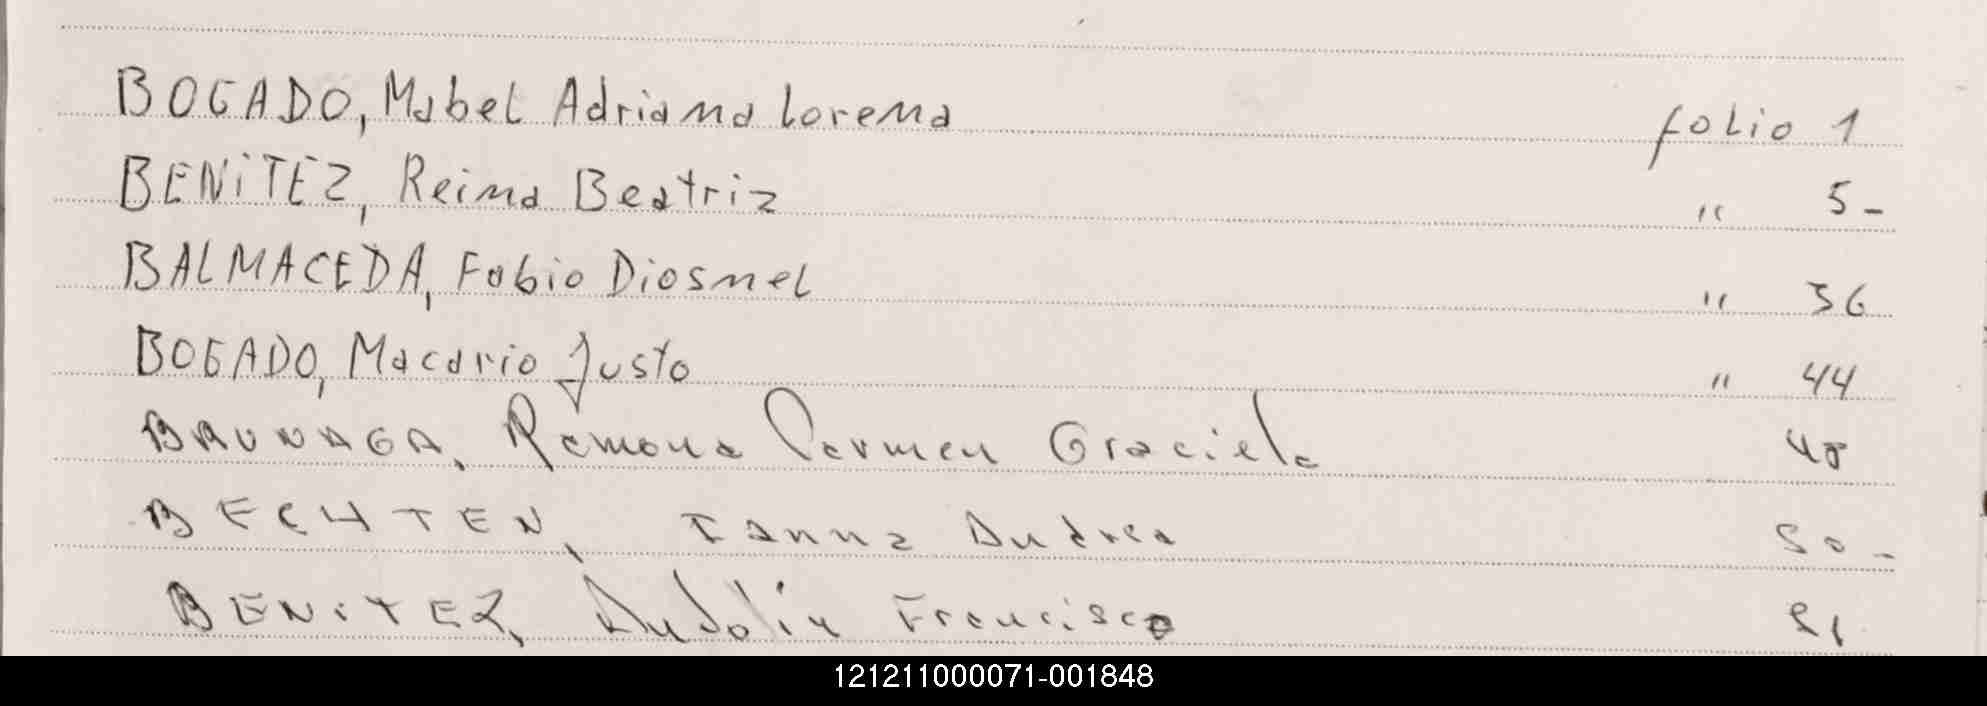 BOGADO, Mabel Adriana Lorena folio 1
BENiTEZ, Reina Beatriz " 5-
BALMACEDA, Fabio Diosnel " 36
BOGADO, Macario Justo " 44
BRUNAGA, Ramona Carmen Graciela 48
BECHTEN, Ianna Andrea 50-
BENiTEZ, Andolin Francisco 51
121211000071-001848